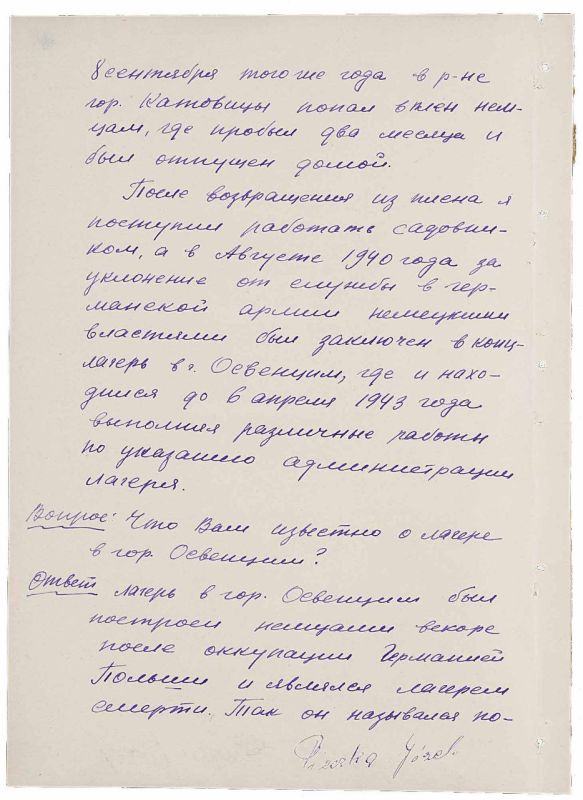 8 сентября того же года в р-не
гор. Катовицы попал в плен нем-
цам, где пробыл два месяца и
был отпущен домой.
После возвращения из плена я
поступил работать садовни-
ком, а в Августе 1940 года за
уклонение от службы в гер-
манской армии немецкими
властями был заключен в конц-
лагерь в г. Освенцим, где и нахо-
дился до 6 апреля 1943 года
выполняя различные работы
по указанию администрации
лагеря.
Вопрос: Что Вам известно о лагере
в гор. Освенцим?
Ответ лагерь в гор. Освенцим был
построен немцами вскоре
после оккупации Германией
Польши и являлся лагерем
смерти. Так он назывался по-
Józef